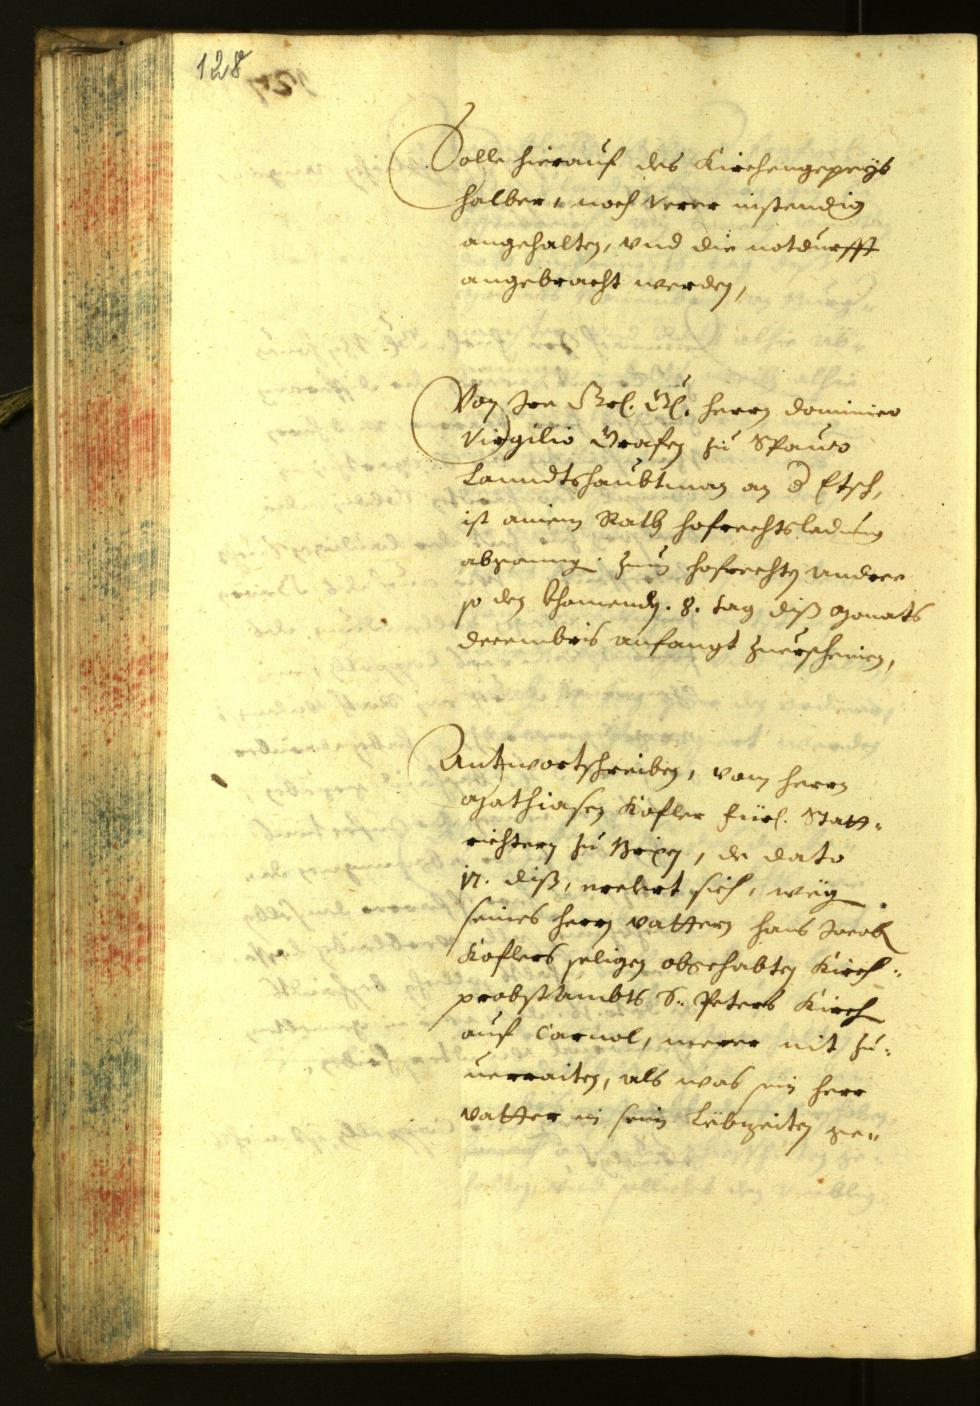 128
Solle hierauf des Kirchengepeys
halber, noch verer instendig
angehalten, vnd die notdurfft
angebracht werden,
Von Irer Gel. Gl. herrn Dominico
Virgilio Grafen zu Spaur
Lanndtshaubtman an d Etsch,
ist ainem Rath hofrechtsladung
abgangng. zum hofrechten
so den khomenden. 8. tag diß Monats
decembris anfangt zuerscheinen,
Antwortschreiben, vom herrn
Mathiasen Kofler fürl. Statt-
richtern zu Brixen, de dato
17. diß, sich, weg
seines herrn vattern hans Jacob
Koflers seligen obgehabten Kirch-
probstambts S. Peters Kirch
auf Carnol, merer nit zu-
uerraiten, als was sein herr
vatter in sein Lebzeiten ge-